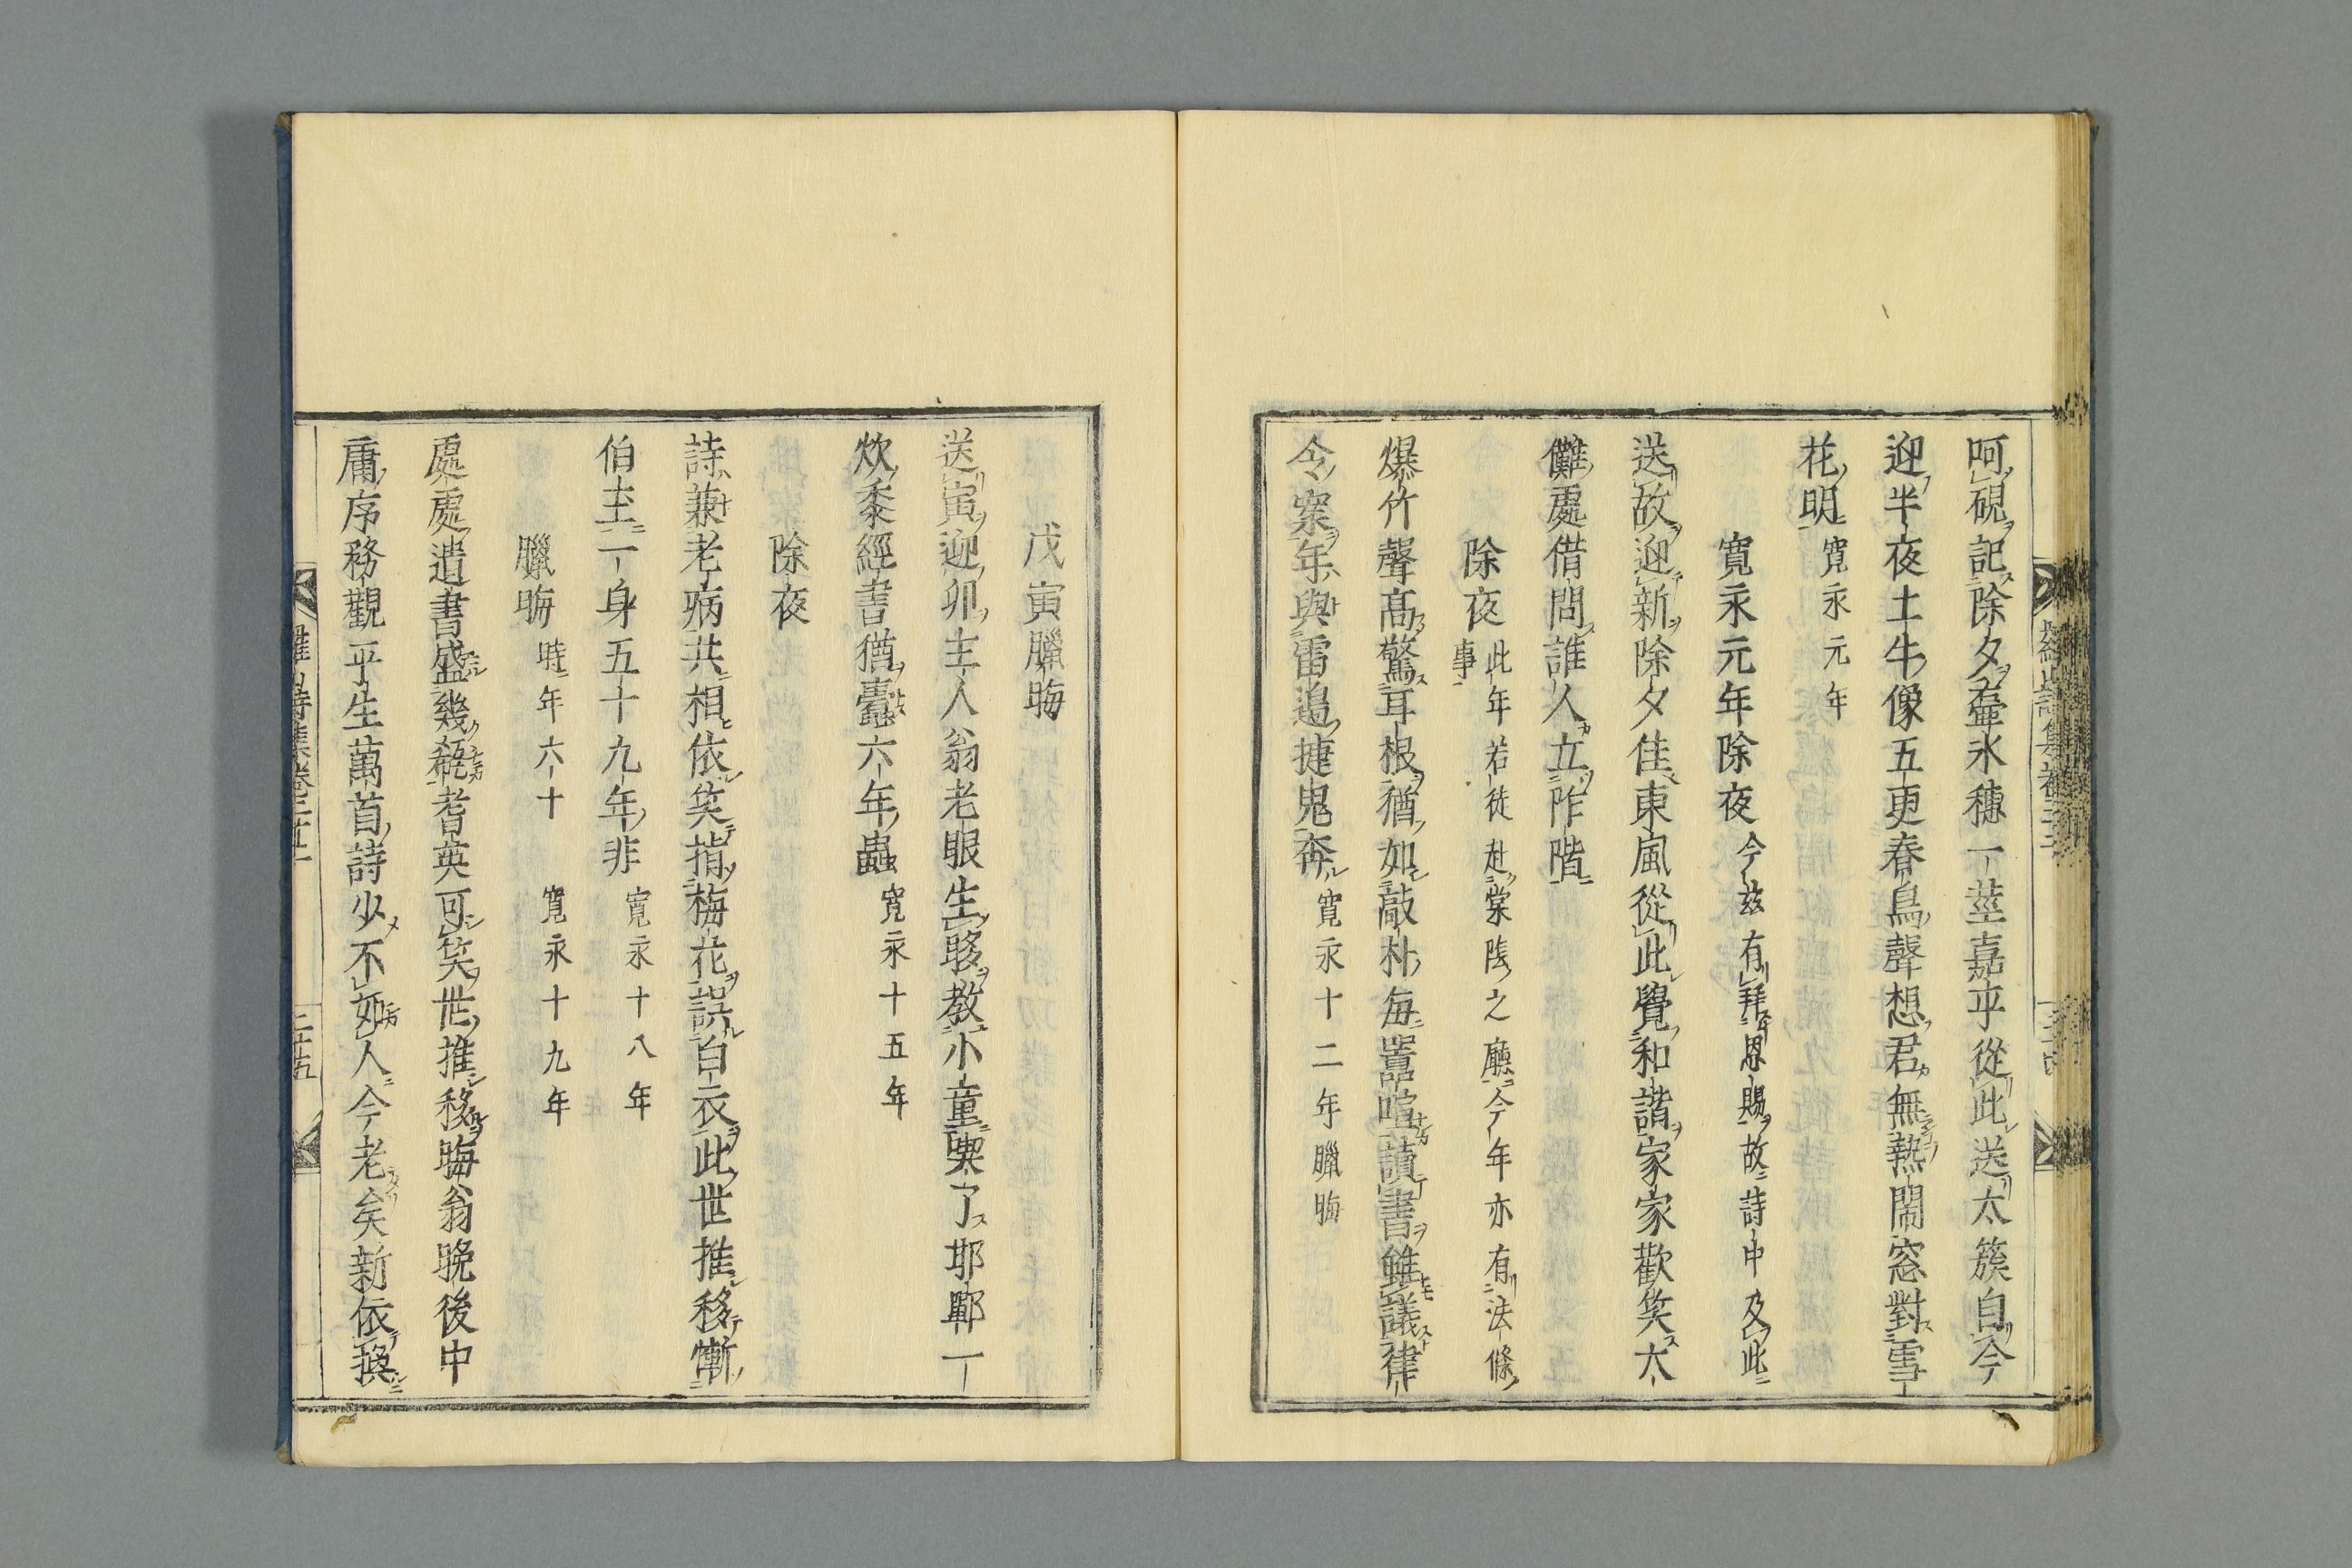 呵硯記除夕壷氷穗一莖嘉平從此送太簇自今
迎半夜土牛像五更春鳥聲想君無熱閙窓對雪
花明 寛永元年
寛永元年除夜 今玆有拜恩賜故詩中及此
送故迎新除夕佳東風從此覺和諧家家歡笑大
儺處借問誰人立阼階
除夜 此年若徒赴棠陰之廳今年亦有法條
事
爆竹聲高驚耳根猶如敲朴每囂喧讀書雖議律
令案年與雷邉捷鬼奔 寛永十二年臘晦
戊寅臘晦
送寅迎卯主人翁老眼生眵教小童輿了邯鄲一
炊黍經書猶蠹六年蟲 寛永十五年
除夜
詩兼老病共相依笑揩梅花誤白衣此世推移慚
伯玉一身五十九年非 寛永十八年
臘晦 時年六十 寛永十九年
處處遺書盛幾瓻耆英可笑世推移晦翁晩後中
庸序務觀平生萬首詩少不如人今老矣新依換